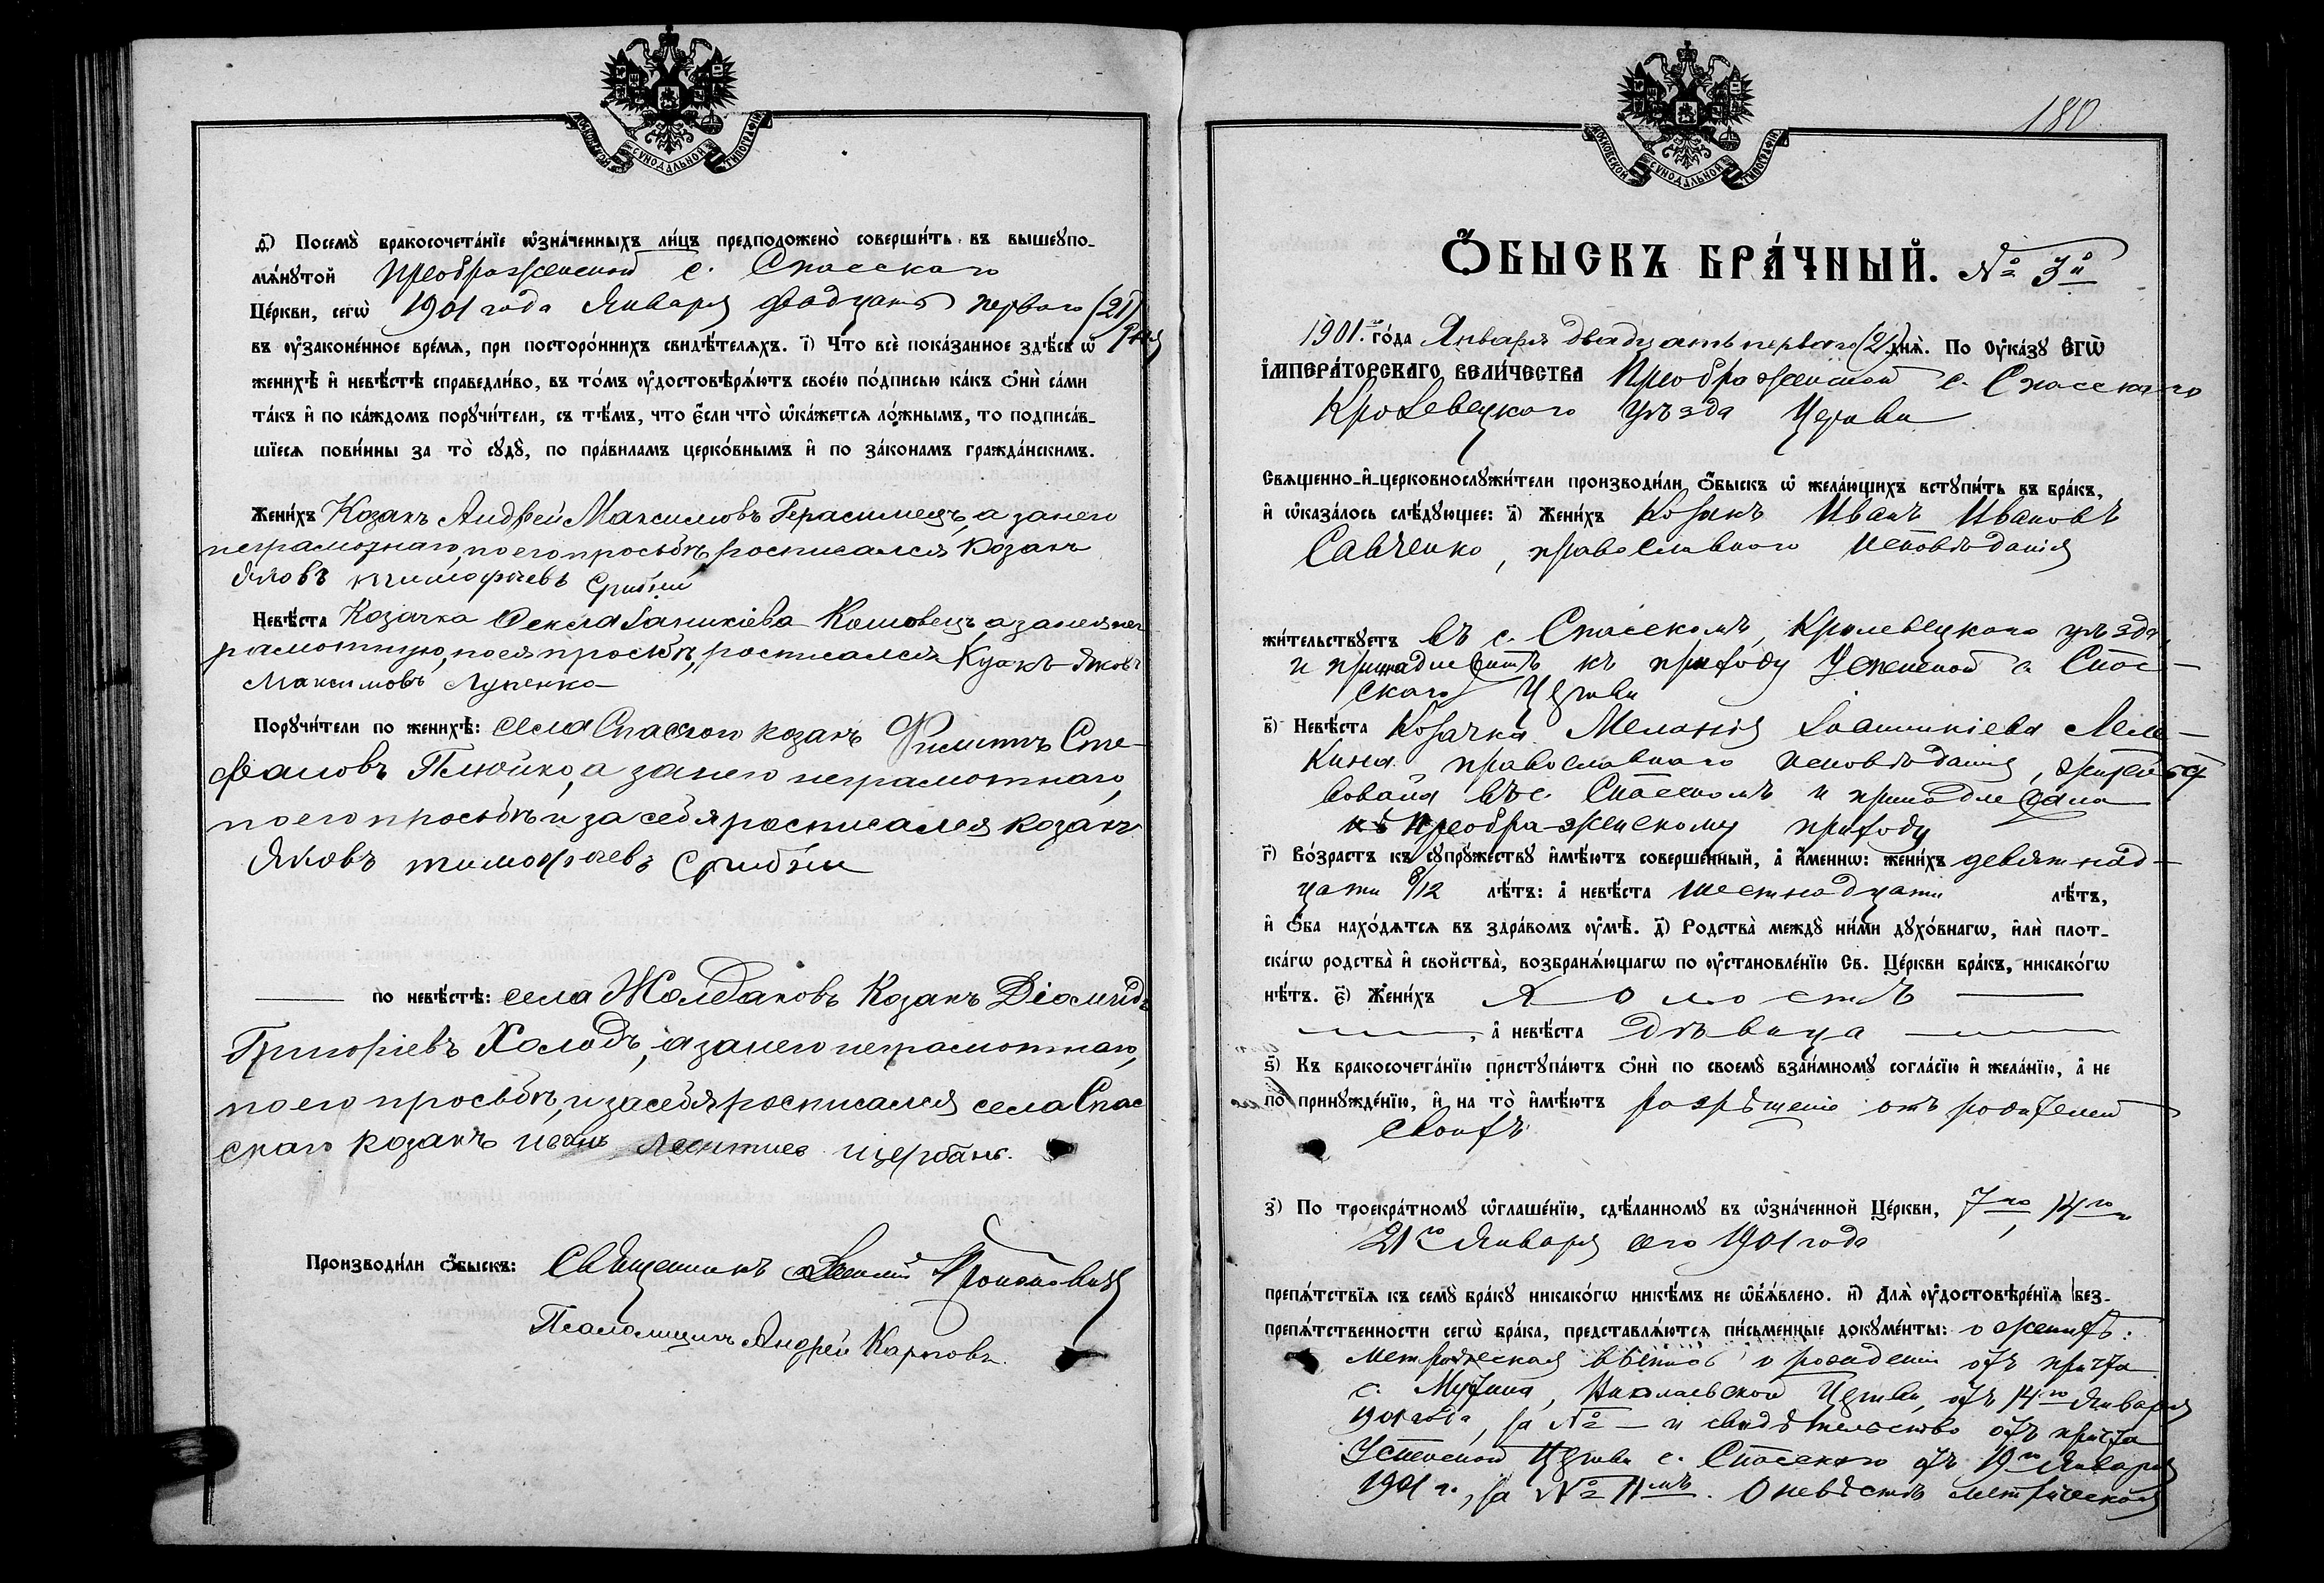 МОСКОВСКОЙ СѴНОДАЛЬНОЙ ТИПОГРАФІИ
ѳ҃) Посемꙋ̀ бракосочета́нїе ѡ҆зна́ченныхъ ли́цъ предположено̀ соверши́ть въ вышеꙋпо-
мѧ́нꙋтой Преображенской с. Спасскаго
Це́ркви, сегѡ̀ 1901 года Января двадцать перваго (21) дня
въ ᲂу҆зако́не́нное вре́мѧ, при посторо́ннихъ свидѣ́телѧхъ. і҃) Что̀ всѐ пока́занное здѣ́сь ѡ҆
женихѣ̀ и҆ невѣ́стѣ справедли́во, въ то́мъ ᲂу҆достовѣрѧ́ютъ свое́ю по́дписью ка́къ ѻ҆нѝ са́ми
та́къ и҆ по ка́ждомъ порꙋчи́тели, съ тѣ́мъ, что є҆́сли что̀ ѡ҆ка́жетсѧ ло́жнымъ, то подписа́в-
шїесѧ пови́нны за то̀ сꙋдꙋ̀, по пра́виламъ церко́внымъ и҆ по зако́намъ гражда́нскимъ.
Жени́хъ Козакъ Андрей Максимовъ Герасимецъ, а за него
неграмотнаго, по его просьбѣ росписался козакъ
Яковъ Тимофѣевъ Срибни
Невѣ́ста Козачка Ѳекла Іаникіева Кошовецъ, а за нея нег
рамотную, по ея просьбѣ, росписался Козакъ Яковъ
Максимовъ Луценко
Порꙋчи́тели по женихѣ̀: села Спасского козакъ Филиппъ Сте-
фановъ Плюйко, а за него неграмотнаго,
по его просьбѣ и за себя росписался козакъ
Яковъ тимофѣевъ Срибни
по невѣ́стѣ: села Жолдаковъ Козакъ Діомидъ
Григоріевъ Холодъ, а за него неграмотнаго,
по его просьбѣ, и за себя росписался села Спас
скаго козакъ Иванъ Леонтиев щербанъ.
Производи́ли ѻ҆́быскъ: Священникъ
Псаломщикъ Андрей Карповъ.
180
МОСКОВСКОЙ СѴНОДАЛЬНОЙ ТИПОГРАФІИ
Ѻ҆́БЫСКЪ БРА́ЧНЫЙ. № 3й
1901го го́да Января двадцать перваго (21) днѧ̀. По ᲂу҆ка́зꙋ Є҆ГѠ̀
І҆МПЕРА́ТОРСКАГО ВЕЛИ́ЧЕСТВА Преображенской с. Спасскаго
Кролевецкого уѣзда Церкви
Свѧще́нно-и҆-церковнослꙋжи́тели производи́ли ѻ҆́быскъ ѡ҆ жела́ющихъ встꙋпи́ть въ бра́къ,
и҆ ѡ҆каза́лось слѣ́дꙋющее: а҃) Жени́хъ Козакъ Иванъ Ивановъ
Савченко, православного исповѣданія
жи́тельствꙋетъ въ с. Спасскомъ, Кролевецкого уѣзда,
и принадлежитъ къ приходу Успенской с. Спас-
скаго Церкви
в҃) Невѣ́ста Козачка Меланія Іоанникіева Леме-
кина православного исповѣданія, жительст
вовала въ с. Спасскомъ и принадлежала
къ Преображенскому приходу
г҃) Во́зрастъ къ сꙋпрꙋ́жествꙋ и҆мѣ́ютъ соверше́нный, а҆ и҆́менно: жени́хъ девятнад-
цати 8/12 лѣ́тъ: а҆ невѣ́ста шестнадцати лѣ́тъ,
и҆ ѻ҆́ба нахо́дѧтсѧ въ здра́вомъ ᲂу҆мѣ̀. д҃) Родства̀ междꙋ̀ ни́ми дꙋхо́внагѡ, и҆лѝ плот-
ска́гѡ родства̀ и҆ свойства̀, возбранѧ́ющагѡ по ᲂу҆становле́нїю Св. Це́ркви бра́къ, никако́гѡ
нѣ́тъ. є҃) Жени́хъ Холостъ
, а҆ невѣ́ста Дѣвица
ѕ҃) Къ бракосочета́нїю пристꙋпа́ютъ ѻ҆нѝ по своемꙋ̀ взаи́мномꙋ согла́сїю и҆ жела́нїю, а҆ не
по̀ принꙋжде́нїю, и҆ на то̀ и҆мѣ́ютъ разрѣшеніе отъ родителей
своихъ
з҃) По троекра́тномꙋ ѡ҆глаше́нїю, сдѣ́ланномꙋ въ ѡ҆зна́ченной Це́ркви, 7го, 14го и
21го Января сего 1901 года
препѧ́тствїѧ къ семꙋ̀ бра́кꙋ никако́гѡ никѣ́мъ не ѡ҆б̾ѧ́влено. и҃) Длѧ̀ ᲂу҆достовѣре́нїѧ без-
препѧ́тственности сегѡ̀ бра́ка, представлѧ́ютсѧ пи́сьменные докꙋме́нты: о женихѣ:
Метрическая о рожденіи отъ причта
с. Мутина, Николаевской Церкви, отъ 14го Января
1901 года, за № — и свидѣтельство отъ причта
Успенской Церкви с. Спасского отъ 19го Января
1901 г., за № 11мъ. О невѣстѣ метрическая